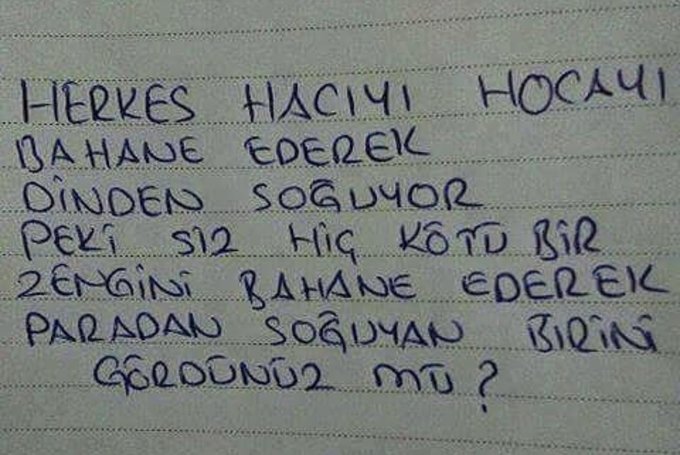 HERKES HACIYI HOCAYI
BAHANE EDEREK
DİNDEN SOĞUYOR
PEKİ SİZ HİÇ KÖTÜ BİR
ZENGİNİ BAHANE EDEREK
PARADAN SOĞUYAN BİRİNİ
GÖRDÜNÜZ MÜ?